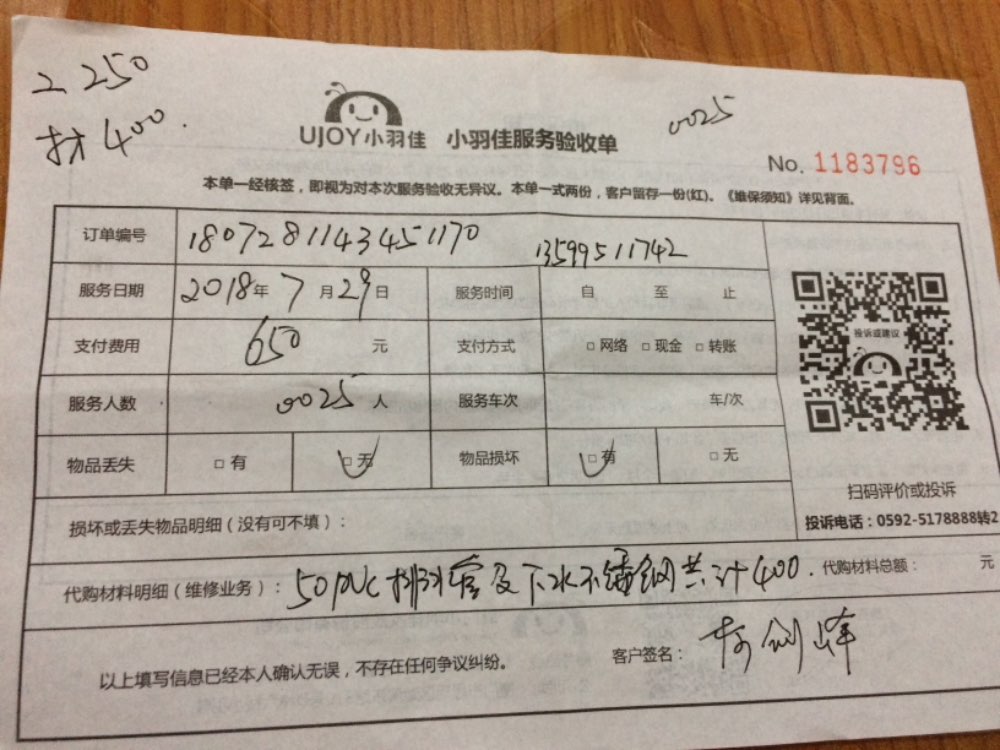 工 250
材 400.
UJOY小羽佳 小羽佳服务验收单
0025
No. 1183796
本单一经核签，即视为对本次服务验收无异议。本单一式两份，客户留存一份(红)。《维保须知》详见背面。
订单编号 1807281143451170 13599511742
服务日期 2018年 7 月 29 日 服务时间 自 至 止
支付费用 650 元 支付方式 □ 网络 □ 现金 □ 转账
服务人数 0025 人 服务车次 车/次
物品丢失 □ 有 □ 无 物品损坏 □ 有 □ 无
投诉或建议
扫码评价或投诉
投诉电话：0592-5178888转2
损坏或丢失物品明细（没有可不填）：
代购材料明细（维修业务）： 50PVC排水管及下水不锈钢共计400. 代购材料总额： 元
以上填写信息已经本人确认无误，不存在任何争议纠纷。 客户签名：